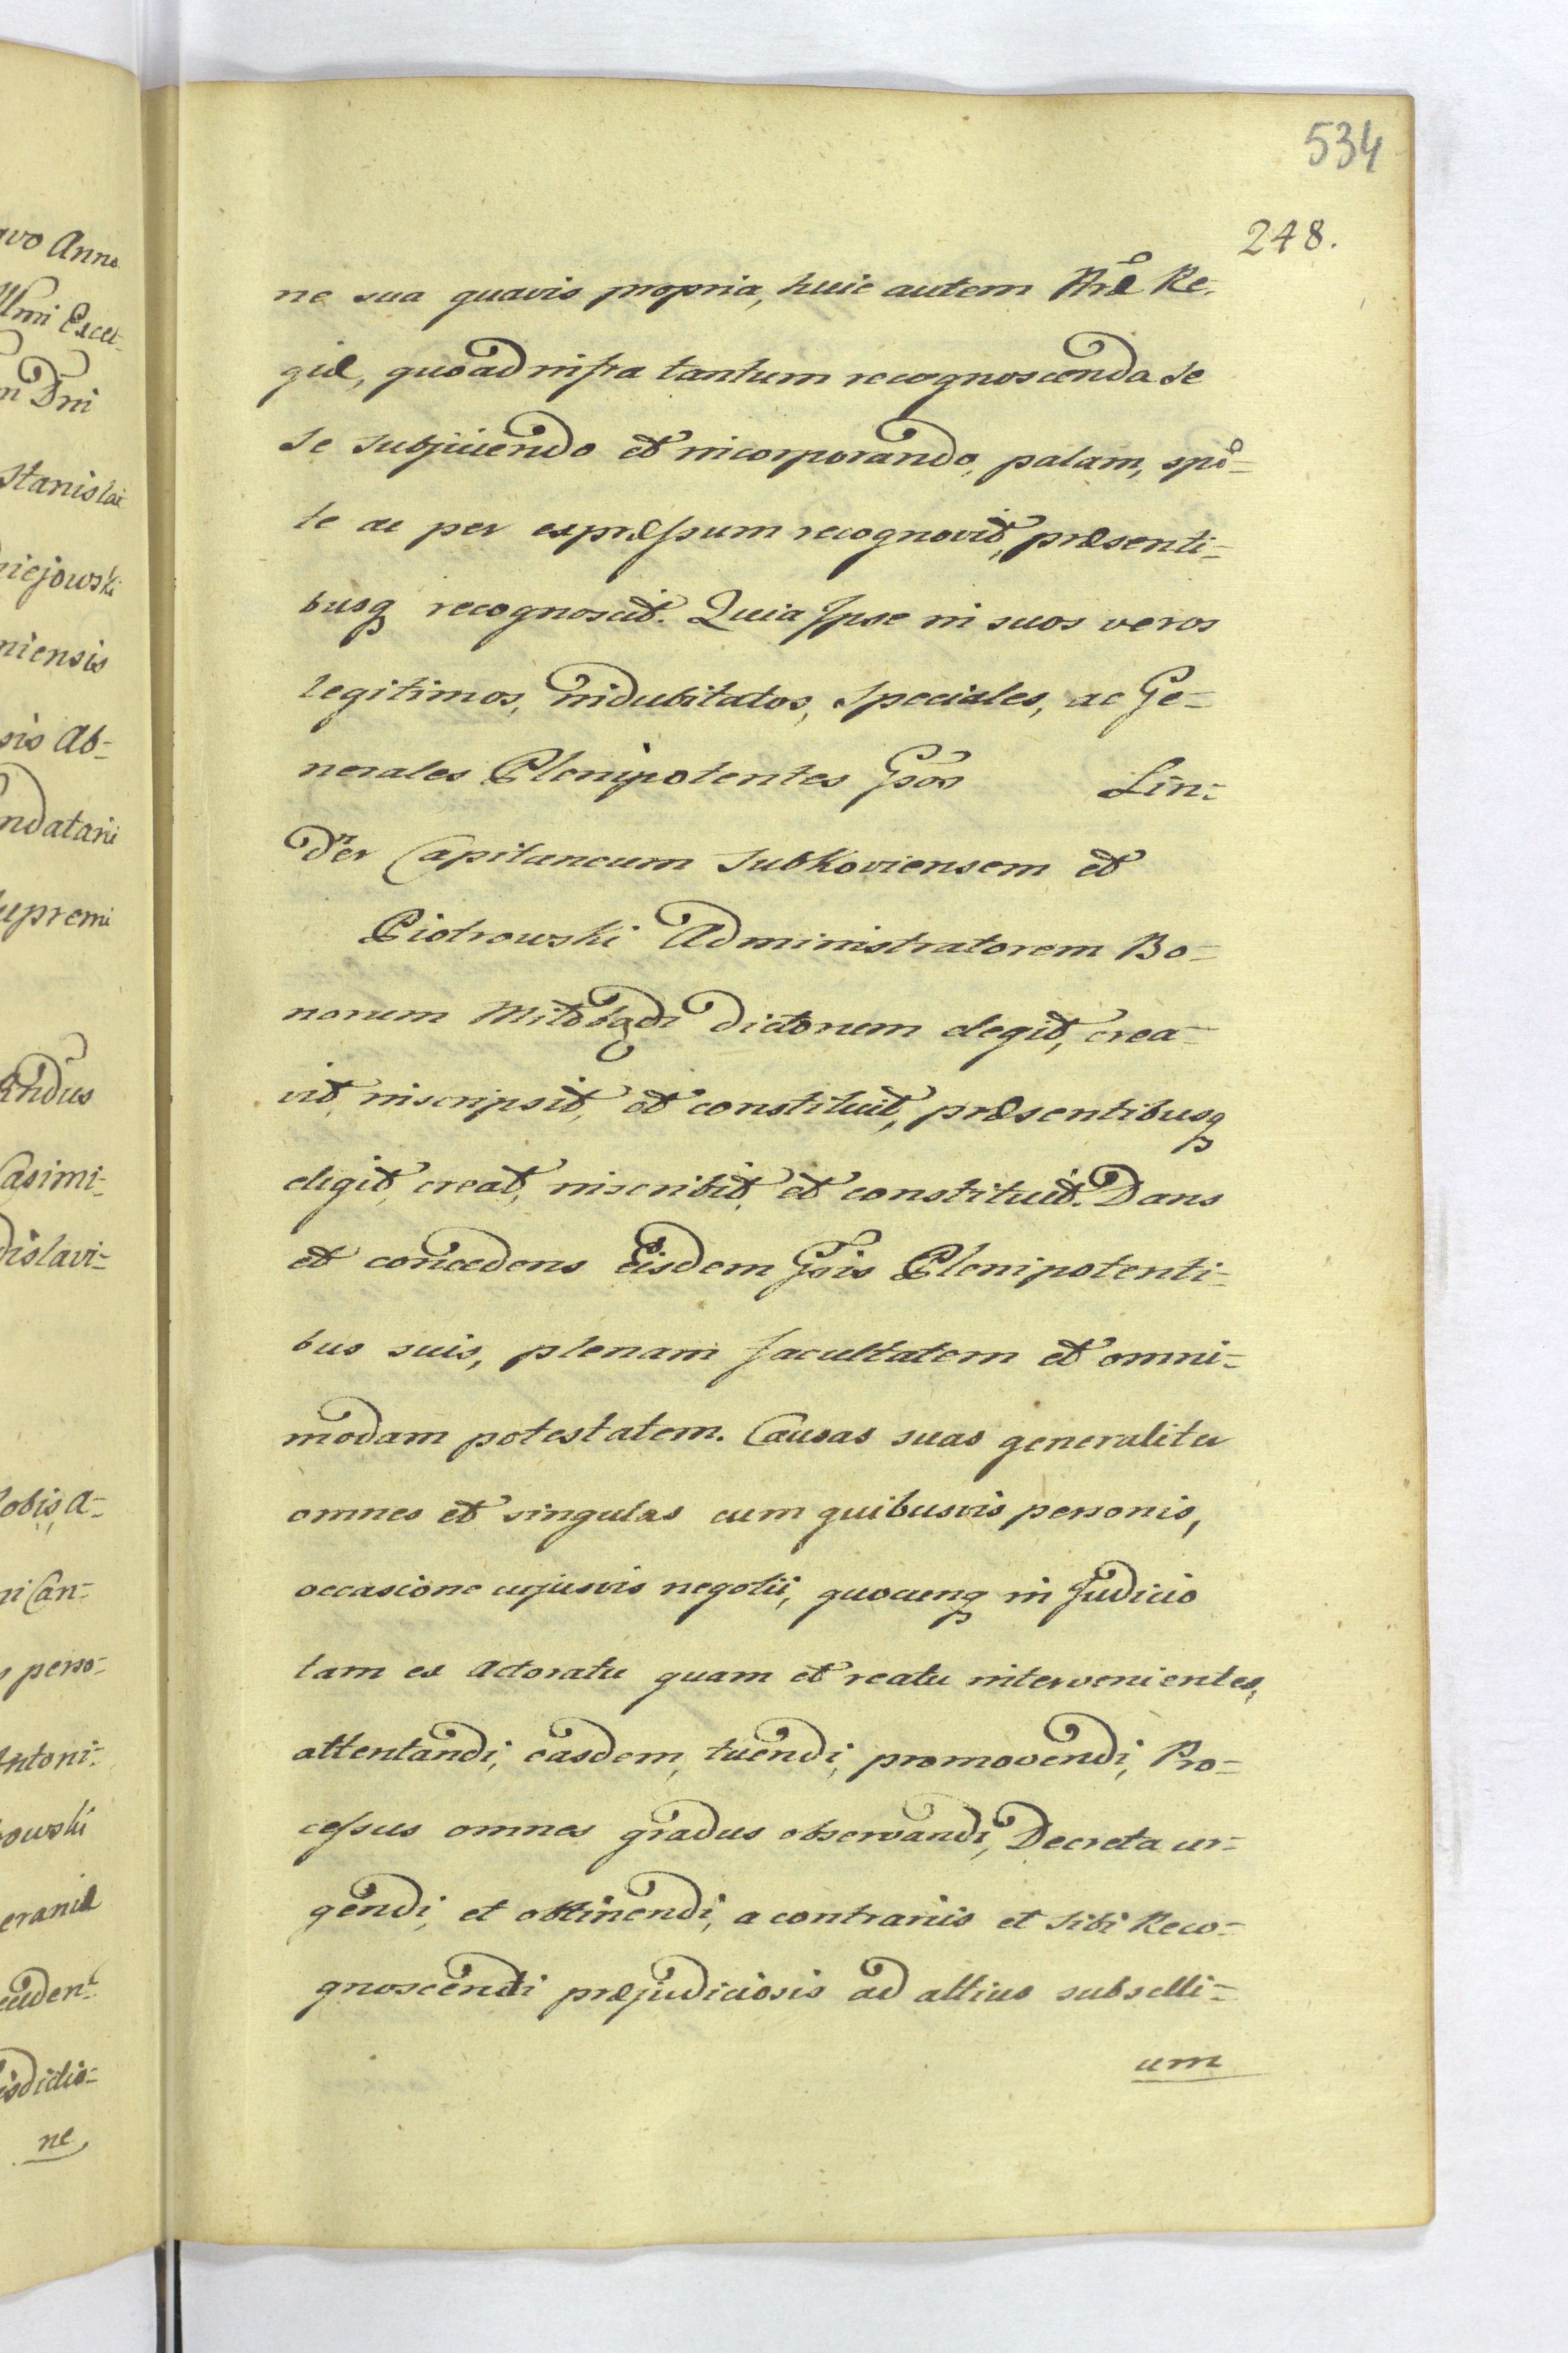 534
248.
ne sua quavis propria, huic autem Nræ Re-
giæ, quoad infra tantum recognoscenda se
se subjiiendo et incorporando, palam, spõ-
te ac per expræssum recognovit, præsenti-
busq recognoscit. Quia Ipse in suos veros
legitimos, indubitatos, Speciales, ac Ge-
nerales Plenipotentes Gsos Lin-
dner Capitaneum Subkoviensem et
Piotrowski Administratorem Bo-
norum dictorum elegit, crea-
vit, inscripsit, et constituit, præsentibusq
eligit, creat, inscribit, et constituit. Dans
et concedens Eisdem Gsis Plenipotenti-
bus suis, plenam facultatem et omni-
modam potestatem. Causas suas generaliter
omnes et singulas cum quibusvis personis,
occasione cujusvis negotii, quocunq in Judicio
tam ex actoratu quam et reatu intervenientes,
attentandi, easdem, tuendi, promovendi, Pro-
cessus omnes gradus observandi, Decreta ur-
gendi, et obtinendi, a contrariis et sibi Reco-
gnoscendi præjudiciosis ad altius subselli-
um
avo Anno
Illmi Excel-
Dni
Stanislai
niejowski
niensis
sis Ab-
ndatarii
supremi
andus
Casimi-
dislavi-
nobis, A-
ni Can-
perso-
Antoni-
kowski
eraniæ
ceden-
isdictio-
ne,